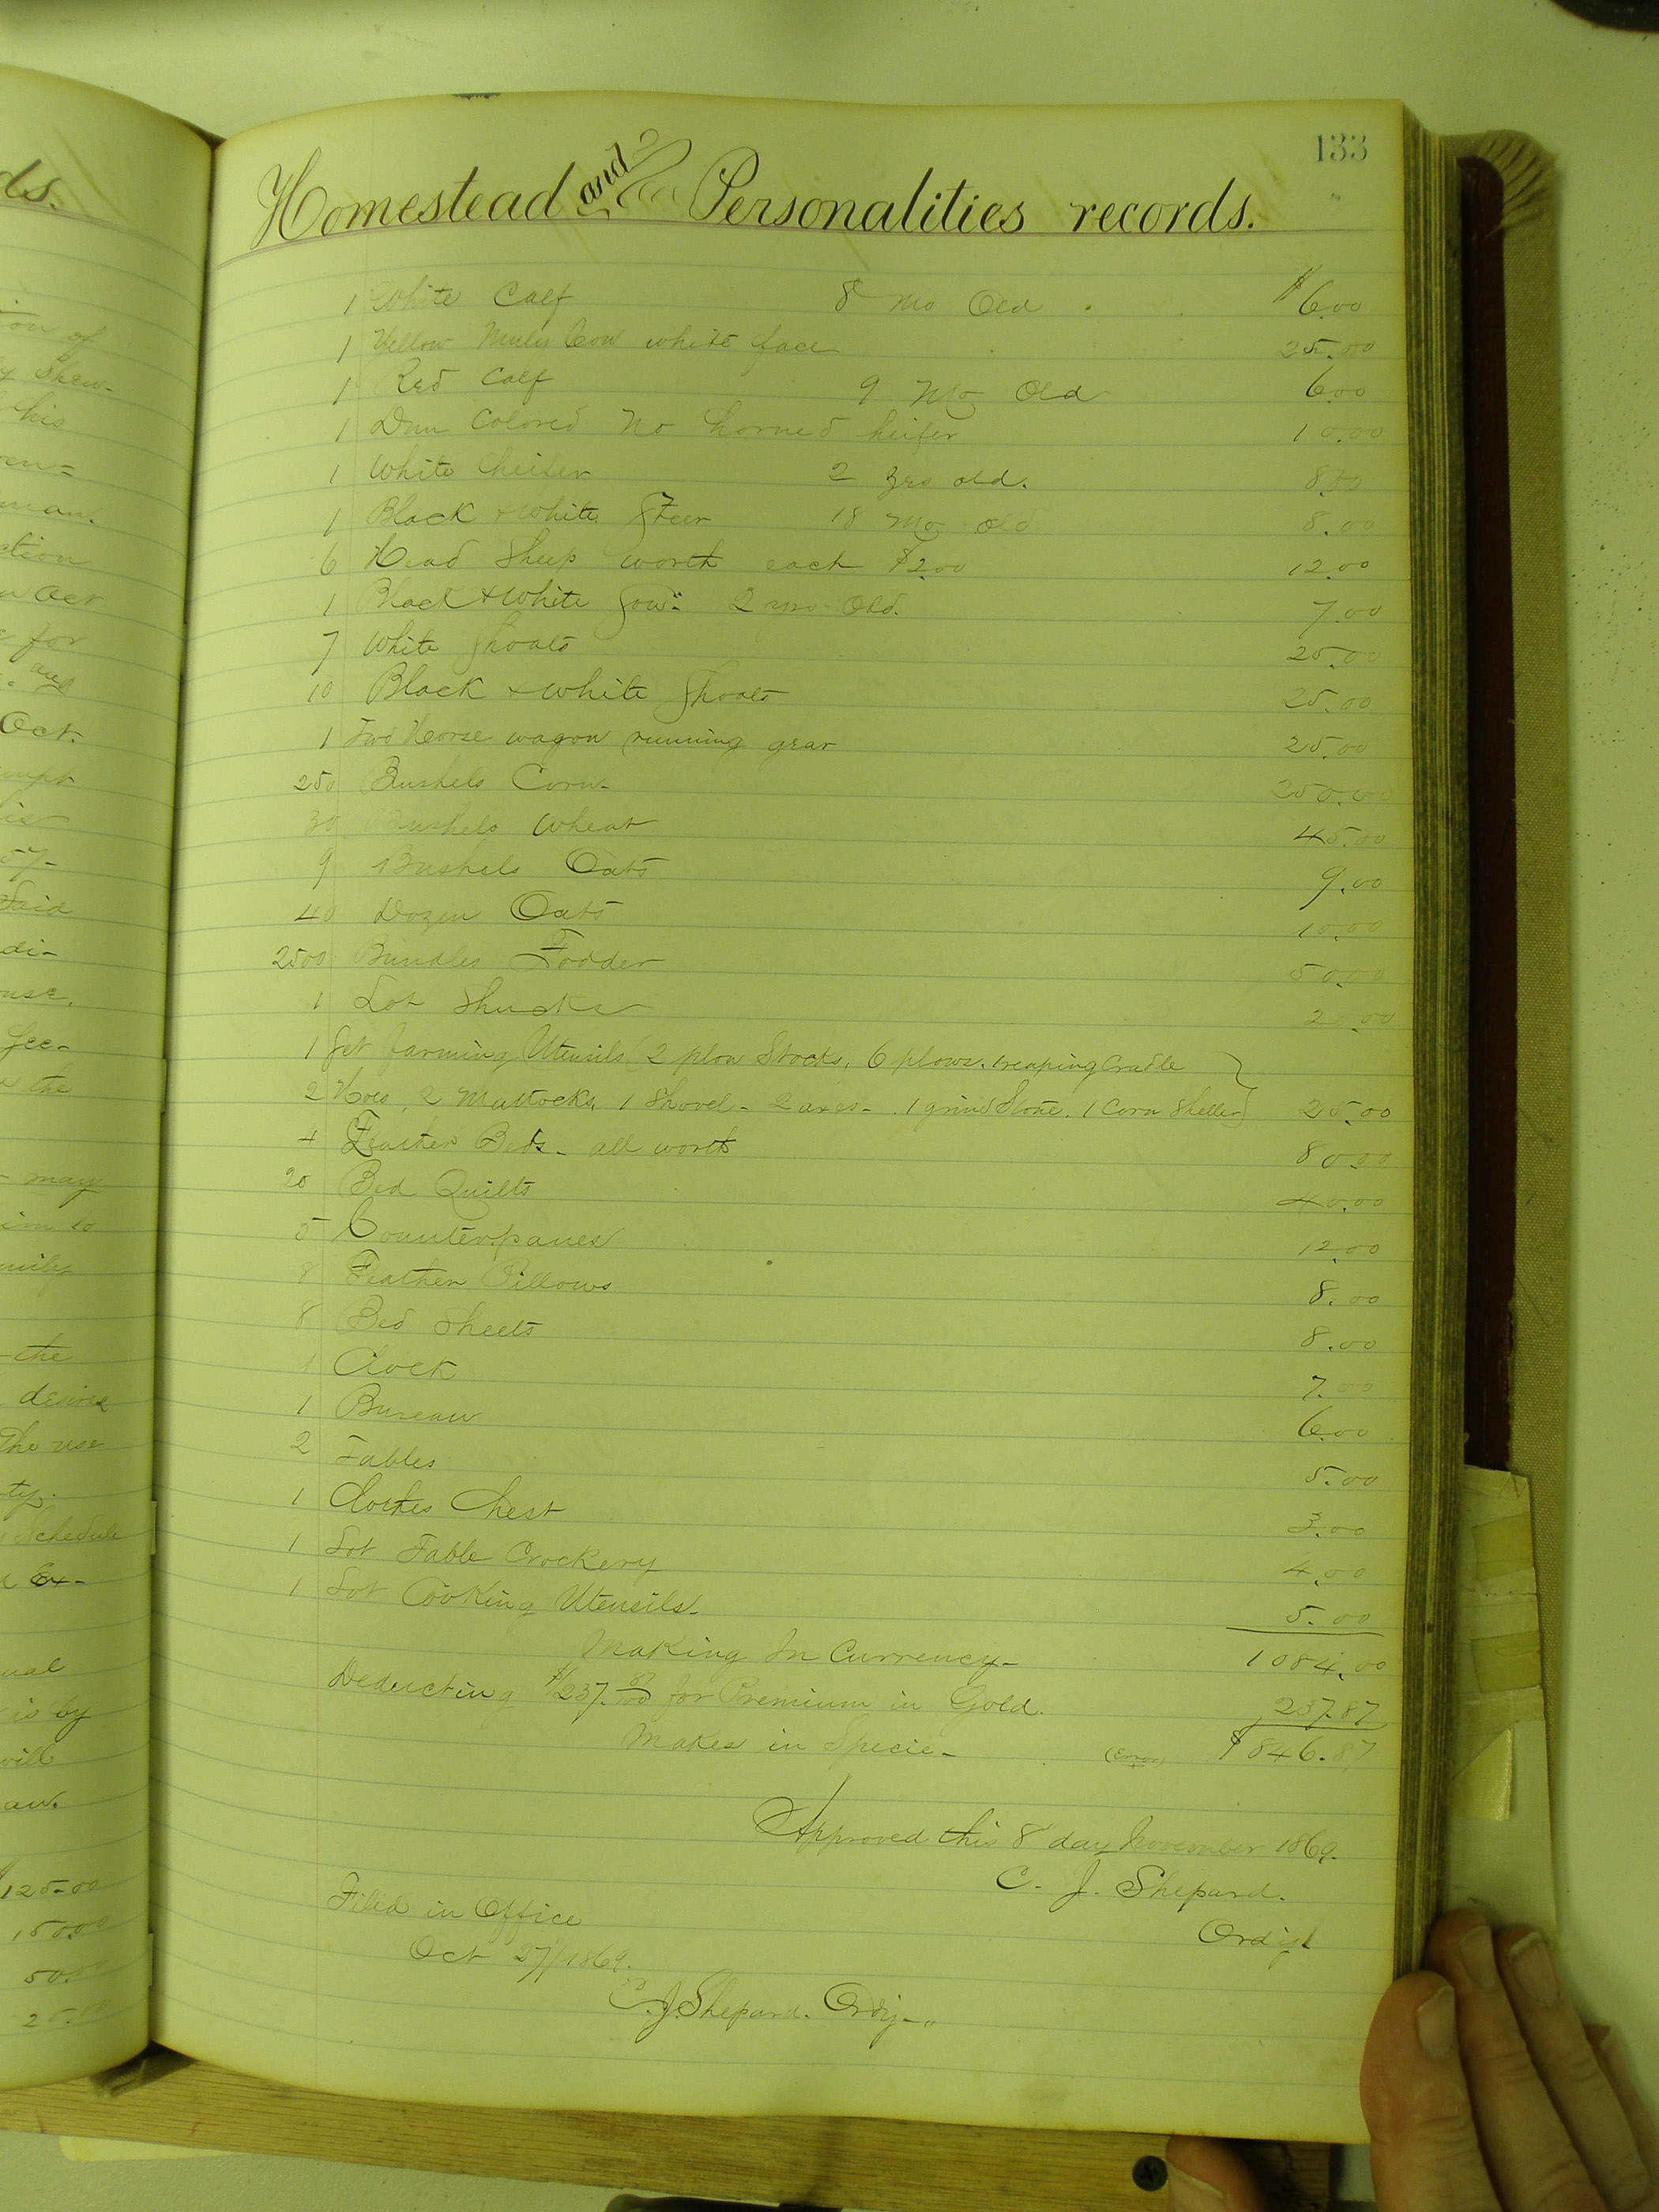 133
ds.
Homestead and Personalities records.
1 White Calf 8 Mo Old . $6.00
1 Yellow Muly Cow white face 25.00
1 Red Calf 9 Mo Old 6.00
1 Dun Colored No horned heifer 10.00
1 White heifer 2 yrs old. 8.00
1 Black & White Steer 18 Mo Old 8.00
6 Head Sheep worth each $2.00 12.00
1 Black & White Sow 2 yrs Old. 7.00
7 White Shoats 25.00
10 Black & White Shoats 25.00
1 Two Horse wagon running gear 25.00
250 Bushels Corn 250.00
30 Bushels Wheat 45.00
9 Bushels Oats 9.00
40 Dozen Oats 10.00
2500 Bundles Fodder 50.00
1 Lot Shucks 20.00
1 Set farming Utensils (2 plow Stocks, 6 plows. 1 reaping Cradle
2 Hoes, 2 Mattocks, 1 Shovel - 2 axes - . 1 grind Stone. 1 Corn Sheller) 25.00
4 Feather Beds - all worth 80.00
20 Bed Quilts 40.00
5 Counterpanes 12.00
8 Feather Pillows 8.00
8 Bed Sheets 8.00
1 Clock 7.00
1 Bureau 6.00
2 Tables 5.00
1 Clothes Chest 3.00
1 Lot Table Crockery 4.00
1 Lot Cooking Utensils. 5.00
Making In Currency - 1084.00
Deducting $237.87/100 for Premium in Gold. 237.87
Makes in Specie - (Error) $846.87
Approved this 8 day November 1869.
C. J. Shepard.
Ordy
Filed in Office
Oct 27" 1869.
C. J. Shepard. Ordy - "
ion of
Shew-
his
man.
ction
Oct
for
and
Oct.
57-
Said
di-
fee-
the
may
the
desires
The use
ty.
Schedule
Ex-
is by
will
$125.00
150.00
50.00
25.00